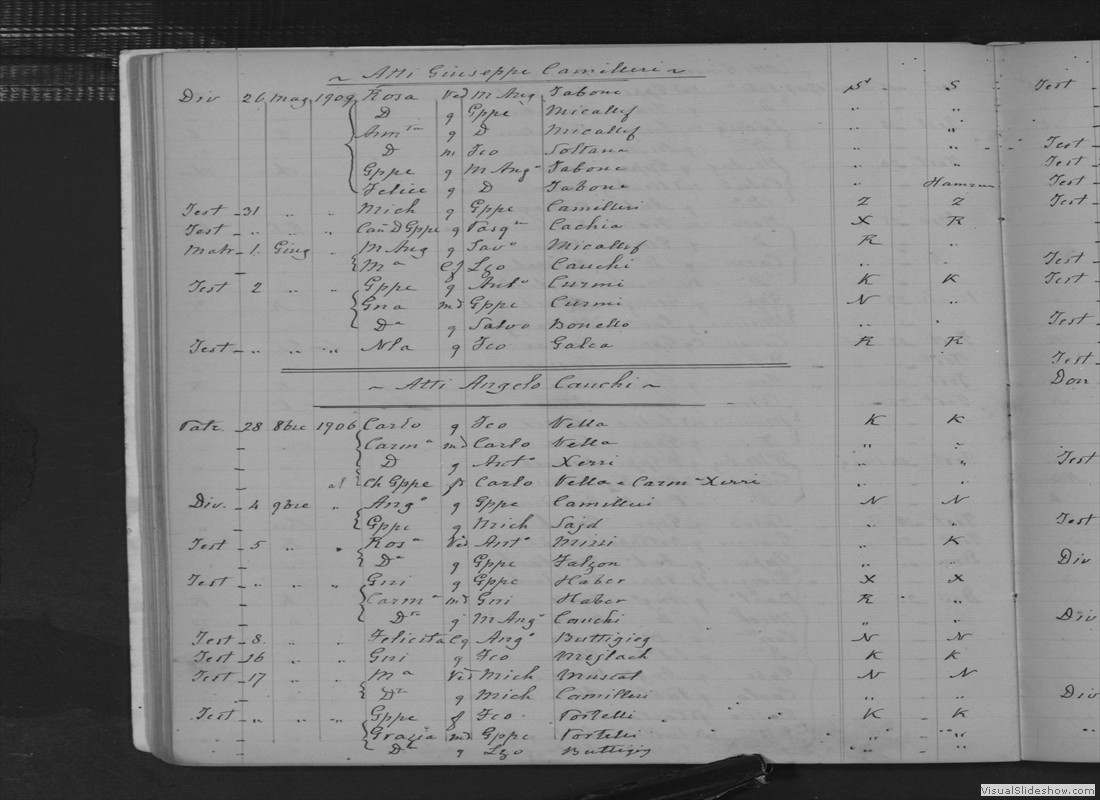 ~ Atti Giuseppe Camilleri ~
Div 26 Mag 1909 Rosa Ved M Ang Tabone S S
D g Gppe Micallef " "
g D Micallef " "
D m Fco Soltana " "
Gppe g M Ang Tabone " "
Felice g D Tabone " Hamrun
Test 31 " " Mich g Gppe Camilleri Z Z
Test " " " Can D Gppe g Pasq Cachia X R
Matr 1 Giug " M Ang g Sav Micallef R "
Ma Cf Lzo Cauchi " "
Test 2 " " Gppe g Anto Curmi K K
Gna md Gppe Curmi N "
Da g Salvo Bonello " "
Test " " " Nla g Fco Galea R R
~ Atti Angelo Cauchi ~
28 8bre 1906 Carlo g Fco Vella K K
Carma md Carlo Vella " "
D g Anto Xerri " "
al Ch Gppe f Carlo Vella e Carm Xerri " "
Div. 4 9bre " Ango g Gppe Camilleri N N
Gppe g Mich Sajd " "
Test 5 " " Rosa Ved Anto Mizzi " K
Da g Gppe Falzon " "
Test " " " Gni g Gppe Haber X X
Carma md Gni Haber R "
Da g M Ang Cauchi " "
Test 8 " " Felicita Cg Ango Buttigieg N N
Test 16 " " Gni g Fco Meglach K K
Test 17 " " Ma Ved Mich Muscat N N
Da g Mich Camilleri " "
Test " " " Gppe f Fco Portelli K K
Grazia md Gppe Portelli " "
Da g Lzo Buttigieg " "
Test
Test
Test
Test
Test
Test
Test
Test
Test
Don
Test
Test
Div
Div
Div
VisualSlideshow.com